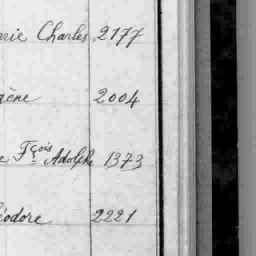 arie Charles 2177
gène 2004
e Fçois Adolphe 1373
éodore 2221